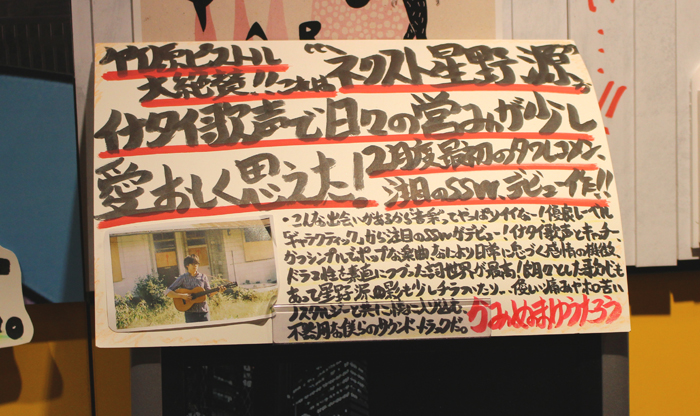 竹原ピストル
大絶賛!!これは“ネクスト星野源”
イナタイ歌声で日々の営みが少し
愛おしく思えた!
2月度最初のタワレコメン
注目のSSW、デビュー作!!
・こんな出会いがあるから音楽ってやっぱりイイな〜!優良レーベル
「ギャラクティック」から注目のSSWがデビュー!イナタイ歌声とキャッチー
かつシンプルでポップな楽曲、なにより日常に息づく感情の機微、
ドラマ性を素直につづった詞世界が最高!朗々とした歌いかたも
あって星野源の影も少しチラついたり、優しい痛みやほろ苦い
ノスタルジーと共に
不器用な僕らのサウンドトラックだ。
うみぬまゆうたろう